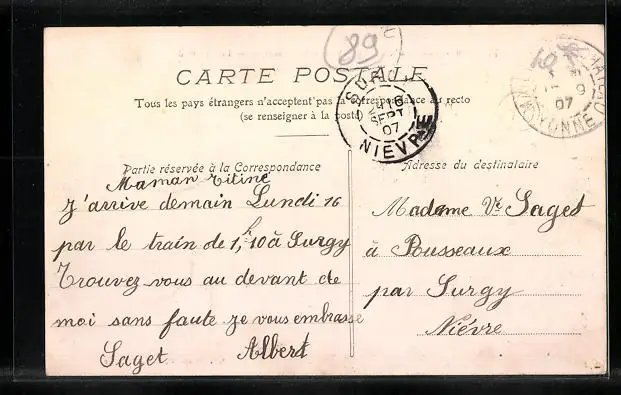 89
CARTE POSTALE
Tous les pays étrangers n'acceptent pas la correspondance au recto
(se renseigner à la poste)
SURGY
16
SEPT
07
NIEVRE
9
07
YONNE
Partie réservée à la Correspondance
Maman Titine
J'arrive demain Lundi 16
par le train de 1,h10 à Surgy
Trouvez vous au devant de
moi sans faute je vous embrasse
Saget Albert
Adresse du destinataire
Madame Ve Saget
à Pousseaux
par Surgy
Nièvre